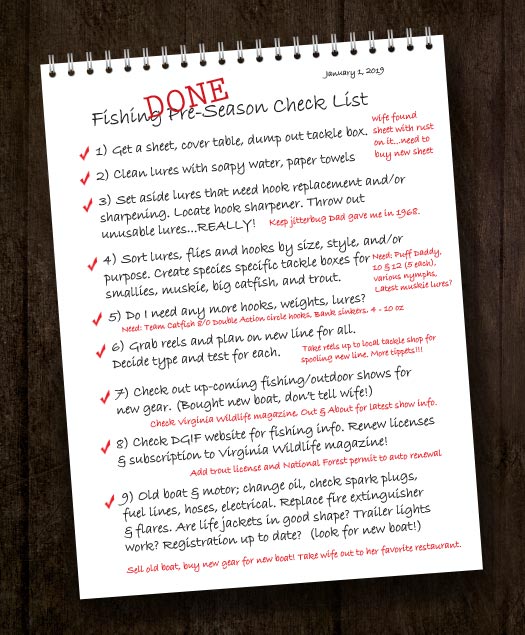 January 1, 2019
DONE
Fishing Pre-Season Check List
1) Get a sheet, cover table, dump out tackle box.
wife found
sheet with rust
on it...need to
buy new sheet
2) Clean lures with soapy water, paper towels
3) Set aside lures that need hook replacement and/or
sharpening. Locate hook sharpener. Throw out
unusable lures...REALLY! Keep jitterbug Dad gave me in 1968.
4) Sort lures, flies and hooks by size, style, and/or
purpose. Create species specific tackle boxes for
smallies, muskie, big catfish, and trout.
Need: Puff Daddy,
10 & 12 (5 each),
various nymphs,
Latest muskie lures?
5) Do I need any more hooks, weights, lures?
Need: Team Catfish 8/0 Double Action circle hooks, Bank sinkers, 4 - 10 oz
6) Grab reels and plan on new line for all.
Decide type and test for each.
Take reels up to local tackle shop for
spooling new line. More tippets!!!
7) Check out up-coming fishing/outdoor shows for
new gear. (Bought new boat, don't tell wife!)
Check Virginia Wildlife magazine, Out & About for latest show info.
8) Check DGIF website for fishing info. Renew licenses
& subscription to Virginia Wildlife magazine!
Add trout license and National Forest permit to auto renewal
9) Old boat & motor; change oil, check spark plugs,
fuel lines, hoses, electrical. Replace fire extinguisher
& flares. Are life jackets in good shape? Trailer lights
work? Registration up to date? (look for new boat!)
Sell old boat, buy new gear for new boat! Take wife out to her favorite restaurant.